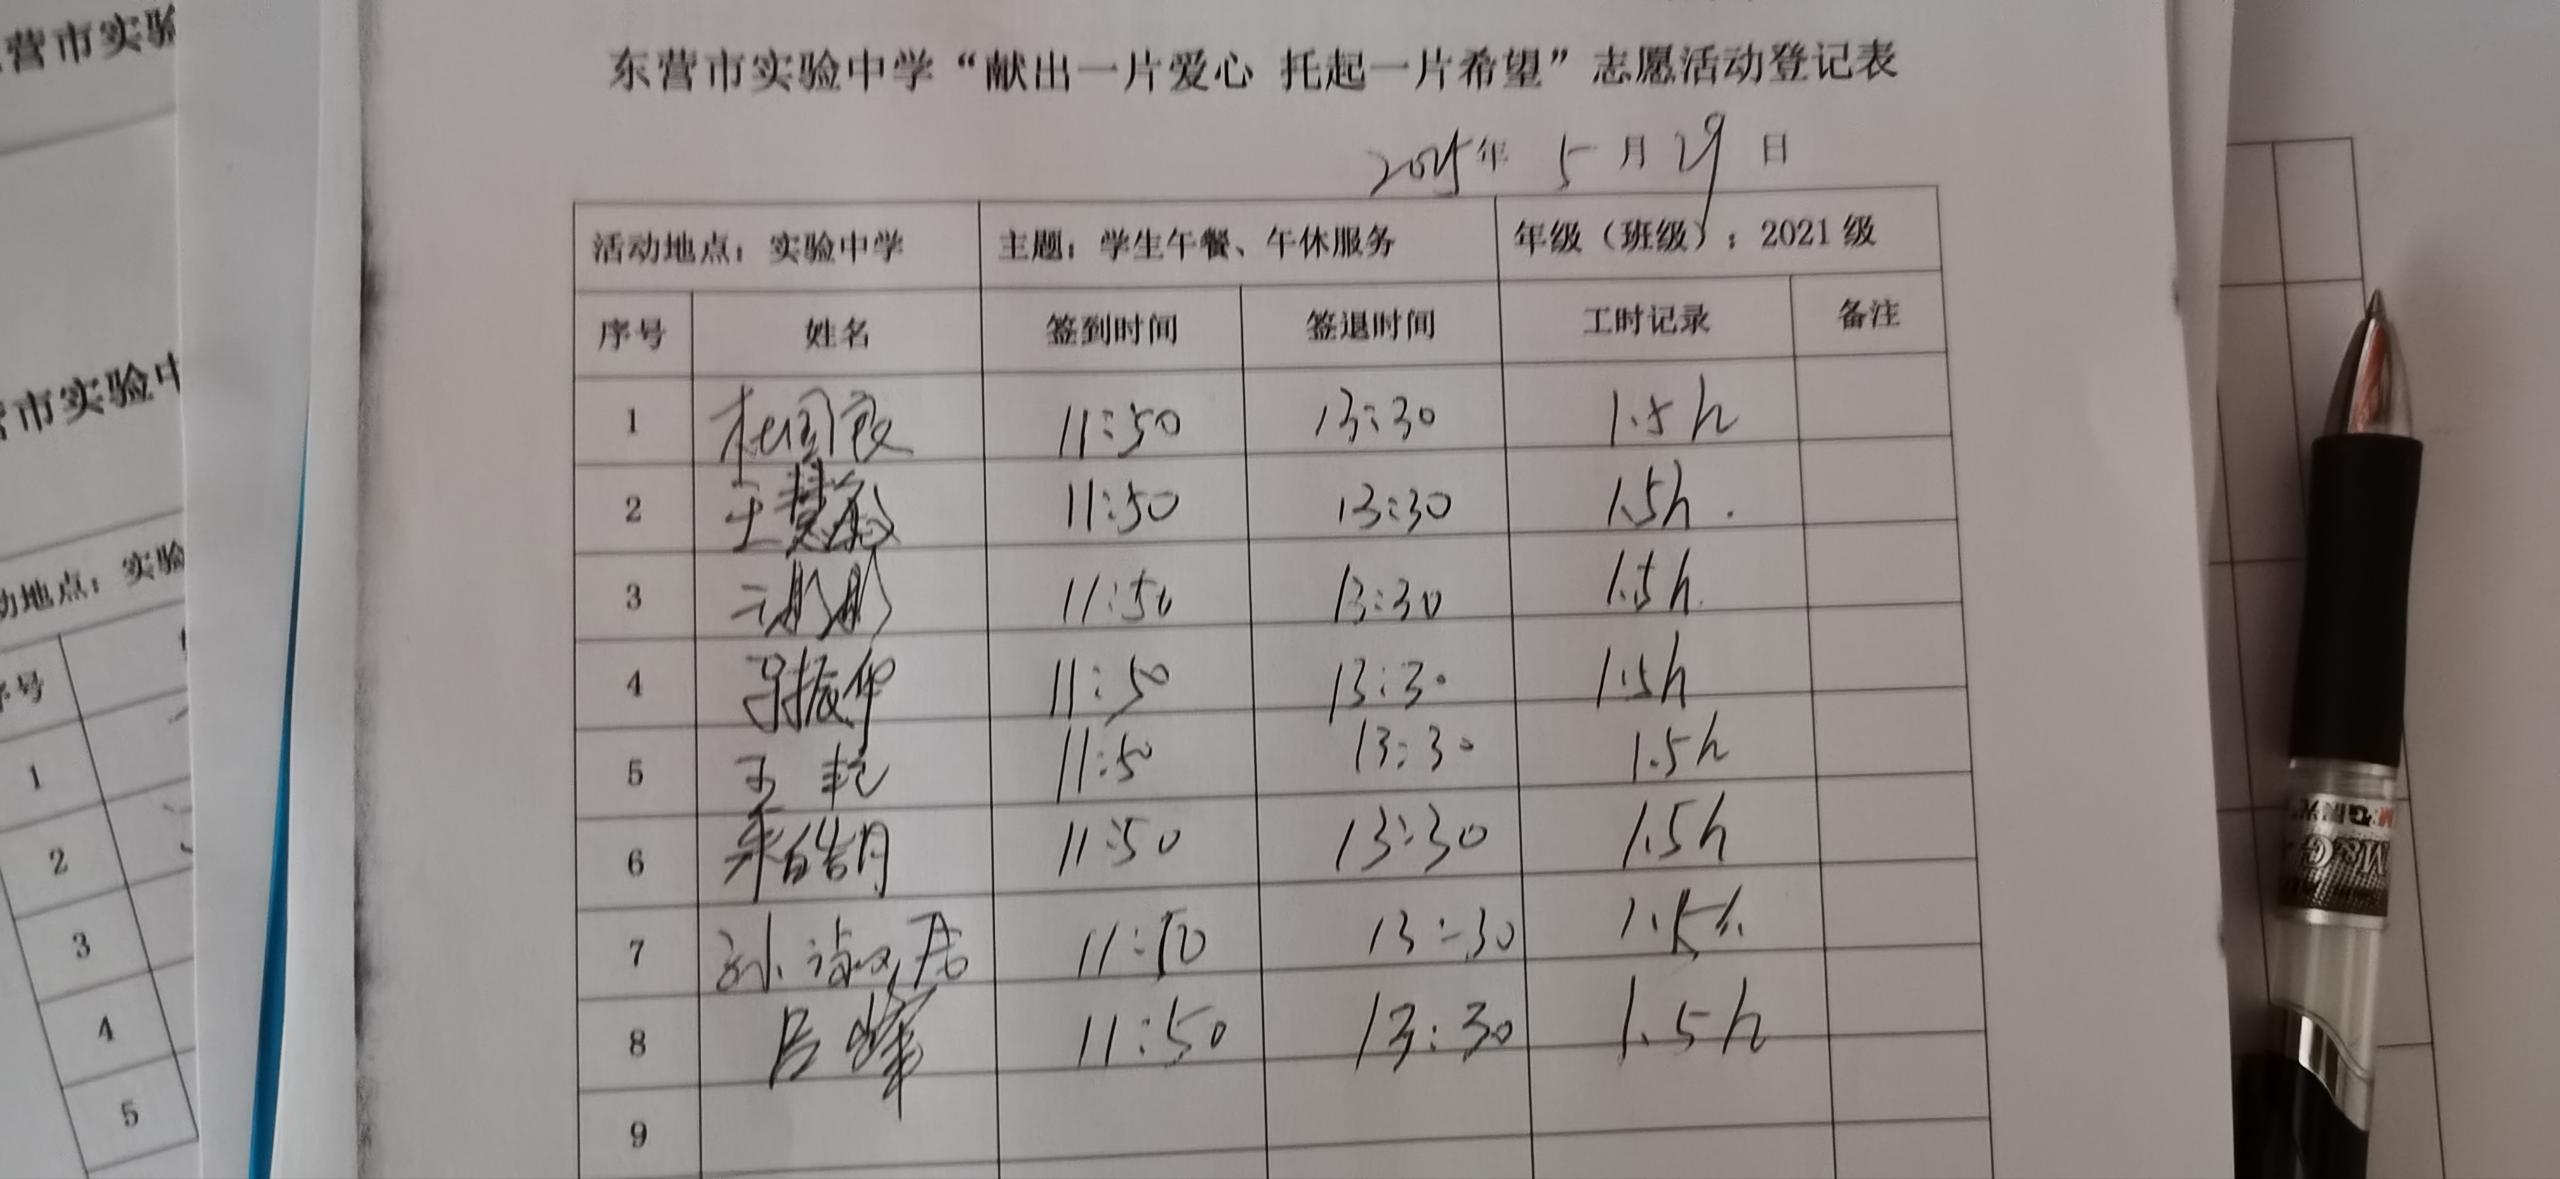 东营市实验中学“献出一片爱心 托起一片希望”志愿活动登记表
2025年 5月29日
活动地点：实验中学 主题：学生午餐、午休服务 年级（班级）：2021级
序号 姓名 签到时间 签退时间 工时记录 备注
1 11:50 13:30 1.5h
2 王慧敏 11:50 13:30 1.5h.
3 11:50 13:30 1.5h.
4 吕振华 11:50 13:30 1.5h
5 王乾 11:50 13:30 1.5h
6 皓月 11:50 13:30 1.5h
7 孙淑君 11:50 13:30 1.5h.
8 吕峰 11:50 13:30 1.5h
9
营市实验
市实验中
动地点：实验
序号
1
2
3
4
5
M&G晨光
M&G